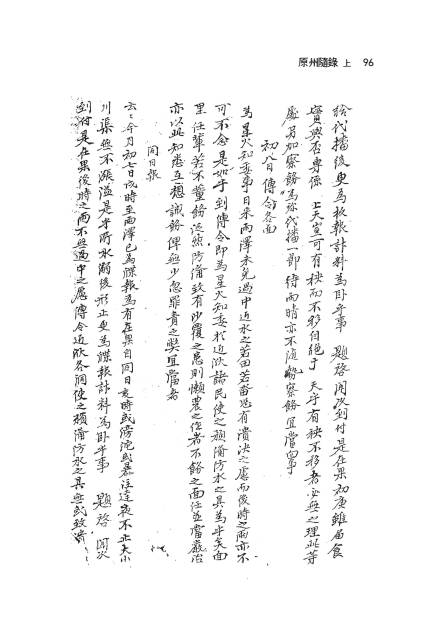 原州隨錄 上 96
給代播後更爲枚報計料爲臥乎事 題啓 因汝到付是在果初庚雖屆食
實與否專係 上天豈可有秧而不移自絶于 天乎有秧不移者必無之理此等
處另加察飭爲㫆代播一節待雨晴亦不隨 察飭宜當向事
初八日傳令各面
爲星火知委事日來雨澤未免過中近水之苗田若畓恐有潰決之慮而後時之雨亦不
可不念是如乎到傳令卽爲星火知委於近浪諸民使之預備防水之具爲乎矣面
里任輩若不董飭泛然防備致有沙覆之患則懶農之作者不飭之面任並當嚴治
亦以此知悉互相誡飭俾無少忽罪責之弊宜當者
同日報
云云今月初七日戌時至雨澤已爲牒報爲有在果自同日亥時或滂沱或暴注達夜不止大小
川渠無不漲溢是乎所水弱後形止更爲牒報計料爲臥乎事 題啓 因汝
到付是在果後時之雨不無過中之慮傳令近浪各洞使之預備防水之具無或致